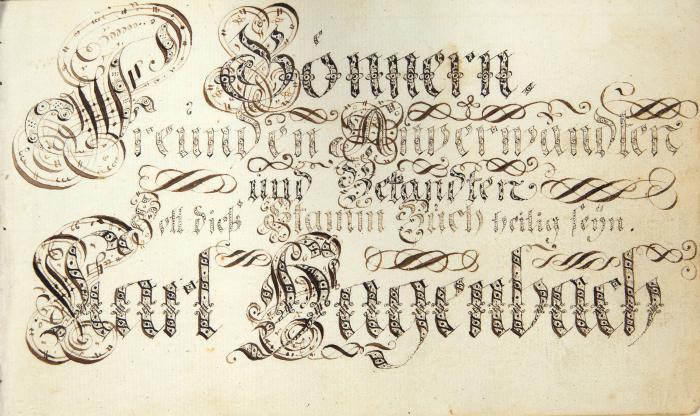 Gönnern,
Freunden Anverwandten
und Bekandten
Soll dies Stamm Buch heilig seyn.
Karl Hegenbach